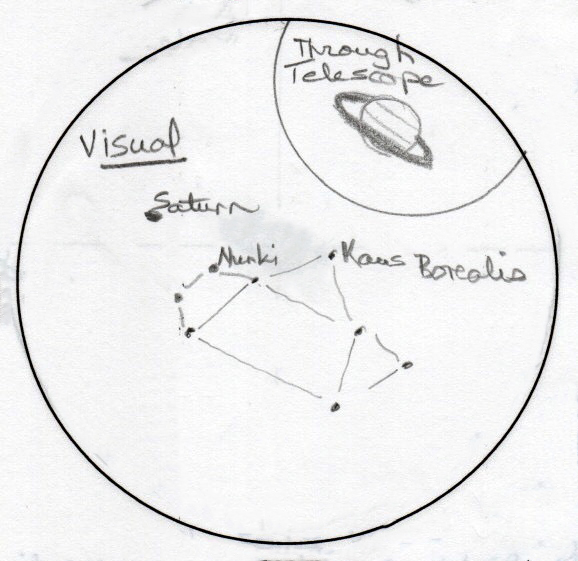 Through
Telescope
Visual
Saturn
Nunki
Kaus Borealis